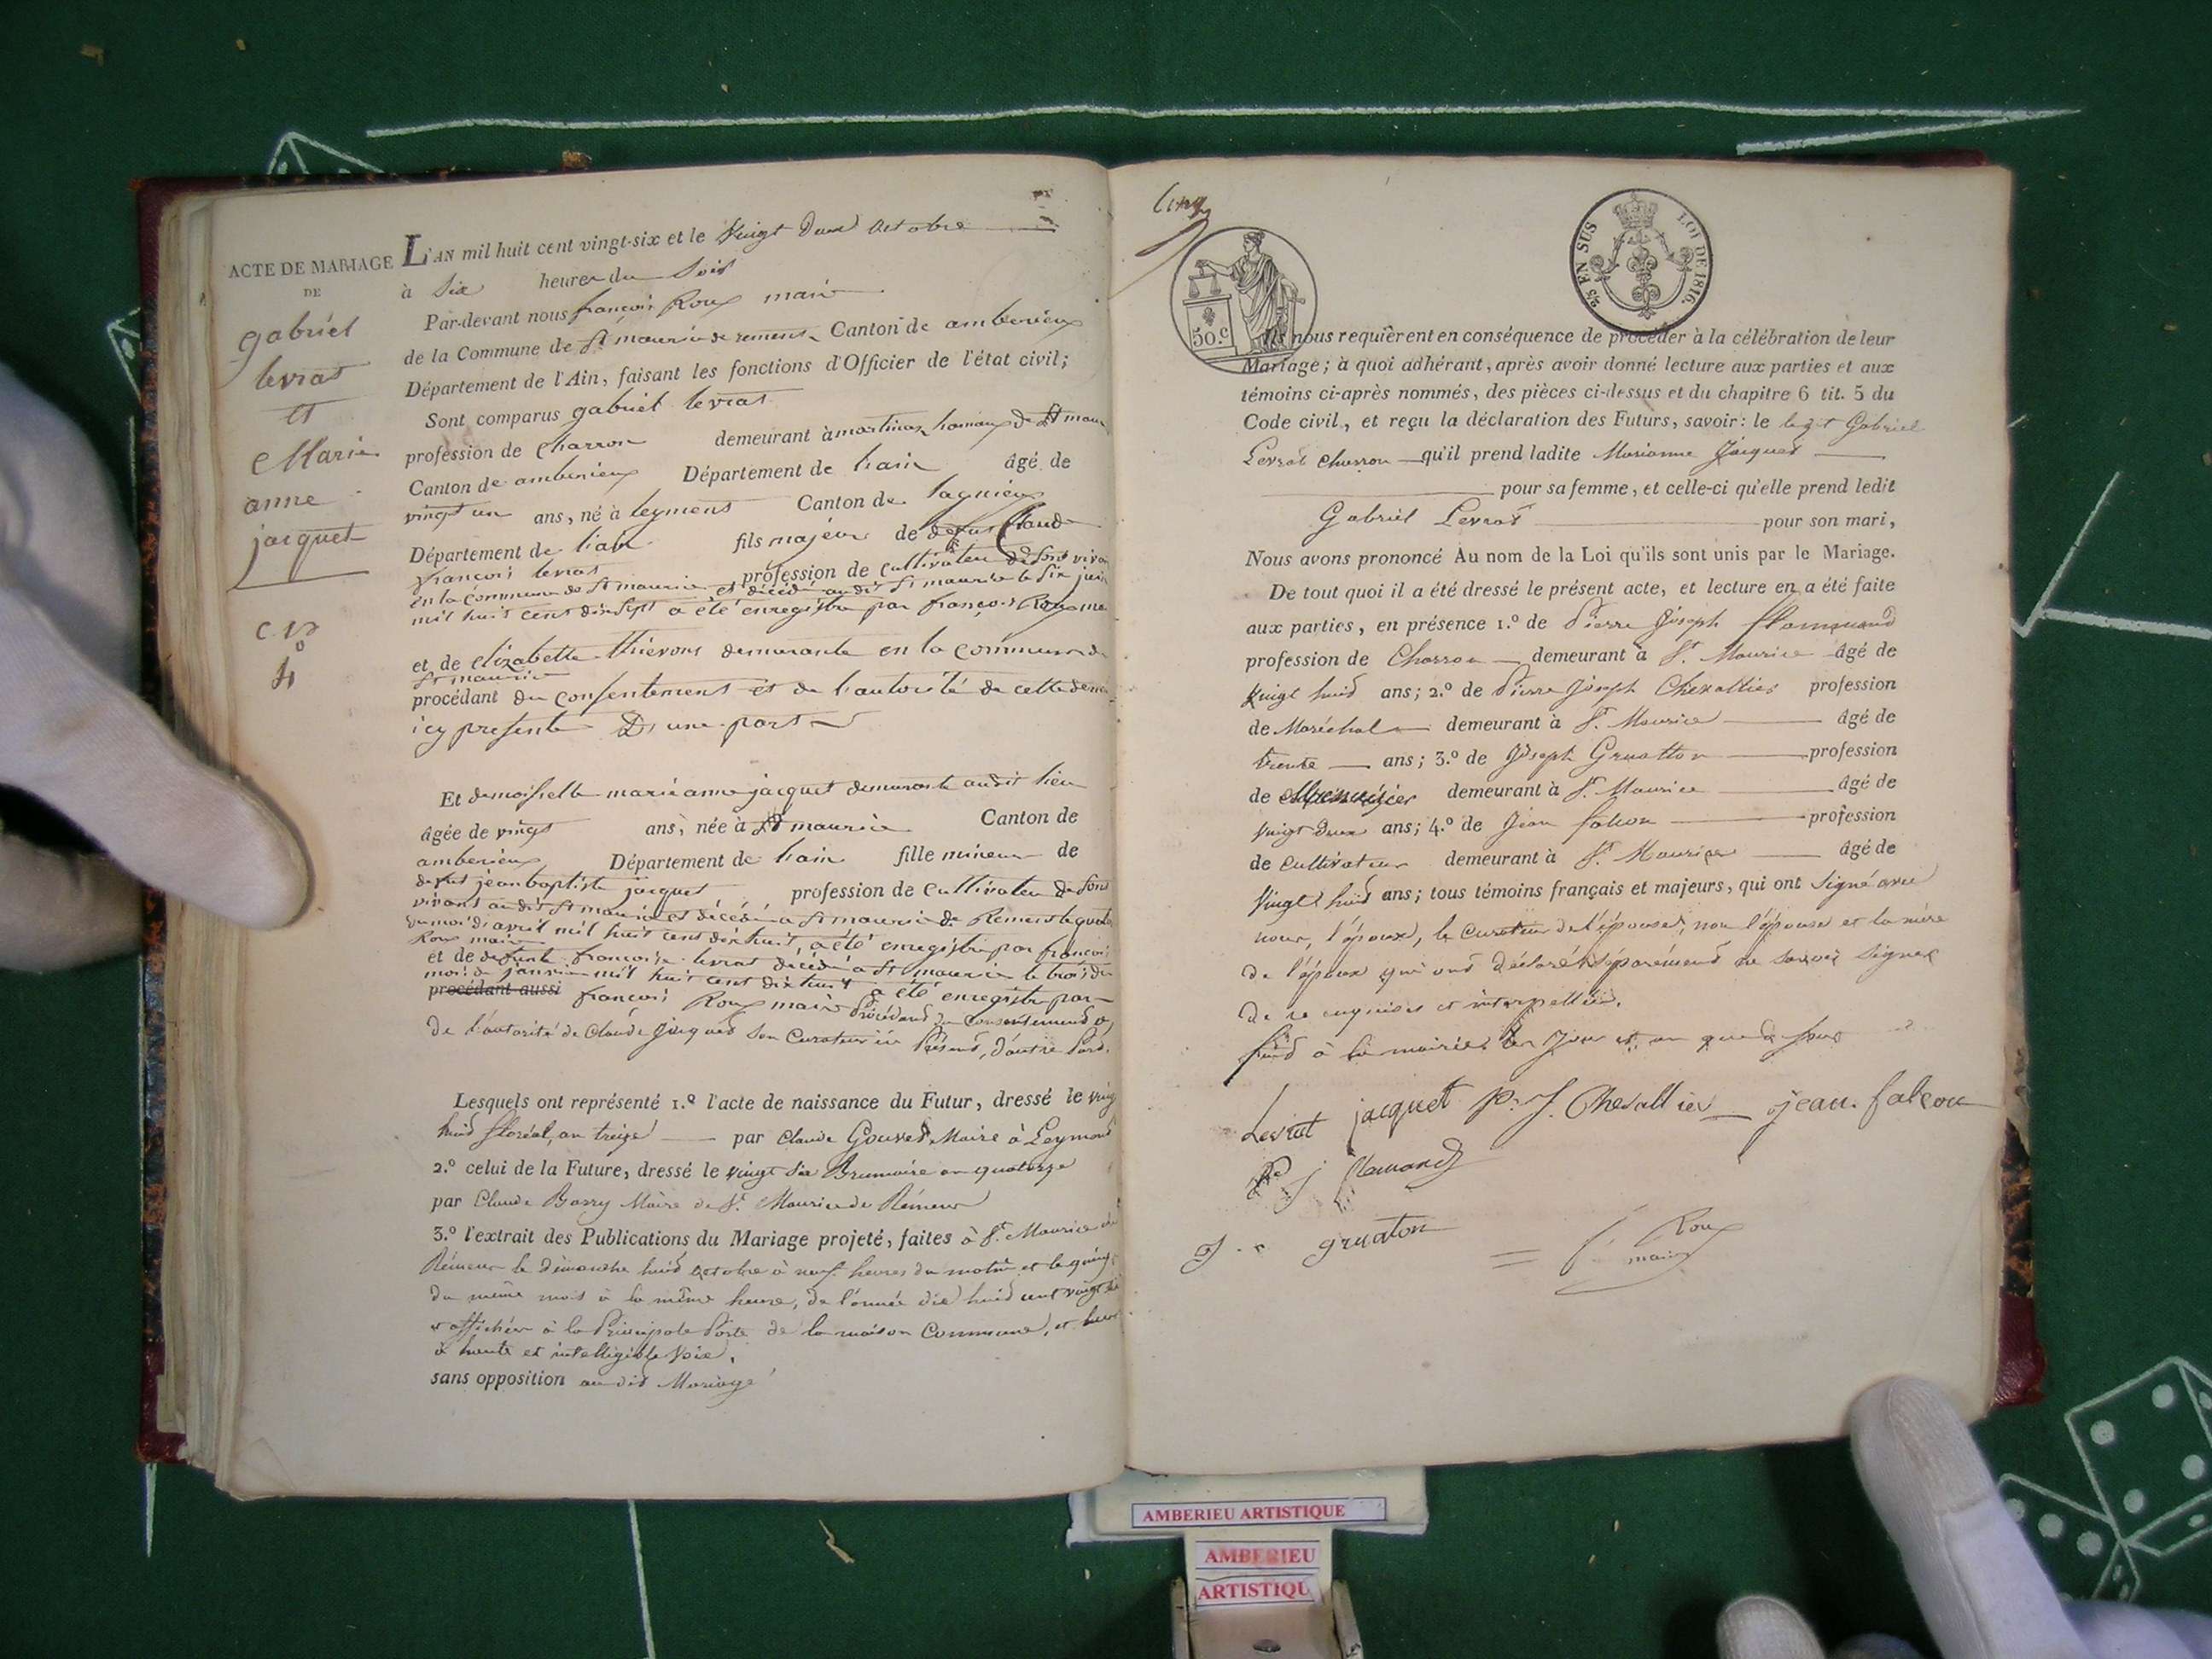 ACTE DE MARIAGE
DE
gabriel
levrat
et
Marie
anne
jacquet
L'AN mil huit cent vingt-six et le Vingt Deux octobre
à Six heures du Soir
Par-devant nous françois Roux maire
de la Commune de St maurice de remens Canton de amberieux
Département de l'Ain, faisant les fonctions d'Officier de l'état civil;
Sont comparus gabriel levrat
profession de Charron demeurant à martinaz hamaux de St maur
Canton de amberieux Département de lain âgé de
vingt un ans, né à leyment Canton de lagnieux
Département de lain fils majeur de defunt Claude
françois levrat profession de Cultivateur de son vivan
en la commune de St maurice et décédé audit St maurice le Six juin
mil huit cent dix Sept a été enregistre par françois Roux me
et de elizabette thievons demurante en la commune de
St maurice
procédant du Consentement et de l'autorité de cette derni
icy presente D'une part
Et demoiselle marie anne jacquet demurante audit lieu
âgée de vingt ans, née à St maurice Canton de
amberieux Département de lain fille mineur de
defunt jean baptiste jacquet profession de Cultivateur de son
vivant audit St maurice et décédé a St maurice de Remens le quatr
du mois d'avril mil huit cent dix huit, a été enregistre par françois
Roux maire
et de defunte françoise levrat décédé a St maurice le trois du
mois de janvier mil huit cent dix huit a été enregistre par
procédant aussi françois Roux maire Procédant du Consentement &
de l'autorité de Claude Jacquet son Curateur ici Présent, d'autre Part.
Lesquels ont représenté 1.º l'acte de naissance du Futur, dressé le vingt
huit floréal, an treize par Claude Gouvet Maire à Leyment
2.º celui de la Future, dressé le vingt six Brumaire an quatorze
par Claude Barry Maire de St Maurice de Rémens
3.º l'extrait des Publications du Mariage projeté, faites à St Maurice de
Rémens le dimanche huit octobre à neuf heures du matin et le quinze
du même mois à la même heure, de l'année dix huit cent vingt six
et affichées à la Principale Porte de la maison Commune, et lues
à haute et intelligible Voix.
sans opposition audit Mariage
50.c
2/5 EN SUS
LOI DE 1816.
Ils nous requièrent en conséquence de procéder à la célébration de leur
Mariage; à quoi adhérant, après avoir donné lecture aux parties et aux
témoins ci-après nommés, des pièces ci-dessus et du chapitre 6 tit. 5 du
Code civil, et reçu la déclaration des Futurs, savoir: le Gabriel
Levrat Charron qu'il prend ladite Marianne Jacquet
pour sa femme, et celle-ci qu'elle prend ledit
Gabriel Levrat pour son mari,
Nous avons prononcé Au nom de la Loi qu'ils sont unis par le Mariage.
De tout quoi il a été dressé le présent acte, et lecture en a été faite
aux parties, en présence 1.º de Pierre Joseph Flammand
profession de Charron demeurant à St Maurice âgé de
Vingt huit ans; 2.º de Pierre Joseph Chevallier profession
de Maréchal demeurant à St Maurice âgé de
trente ans; 3.º de Joseph Gruatton profession
de Menuisier demeurant à St Maurice âgé de
Vingt deux ans; 4.º de Jean falcon profession
de Cultivateur demeurant à St Maurice âgé de
Vingt huit ans; tous témoins français et majeurs, qui ont Signé avec
nous, l'époux, le Curateur de l'épouse, non l'épouse et la mère
de l'époux qui ont déclaré séparément ne savoir Signer
de ce enquises et interpellées.
fait à la mairie les Jour et an que dessus
Levrat jacquet P. J. Chevallier jean. falcon
J flamand
J gruaton
f. Roux
maire
AMBERIEU ARTISTIQUE
AMBERIEU
ARTISTIQU